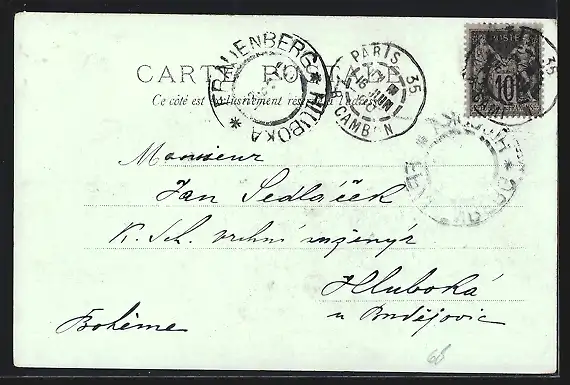 CARTE POSTALE
Ce côté est exclusivement réservé à l'adresse
FRAUENBERG * HLUBOKA *
PARIS 35
R. CAMBON
15 JUIN
POSTE
10
35
Monsieur
Jan Sedláček
K. Sch. vrchní inženýr
Hluboká
u Budějovic
Bohême
68